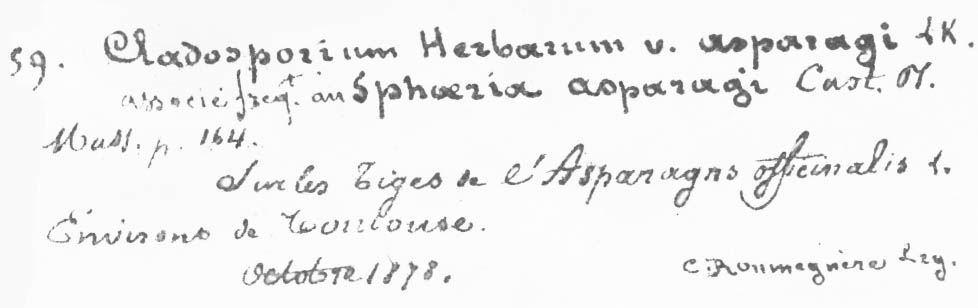 59. Cladosporium Herbarum v. asparagi LK.
associé freqt. au Sphæria asparagi Cast. Pl.
Mass. p. 164.
Sur les Tiges de l'Asparagus officinalis L.
Environs de Toulouse.
Octobre 1878. C. Roumeguère Leg.